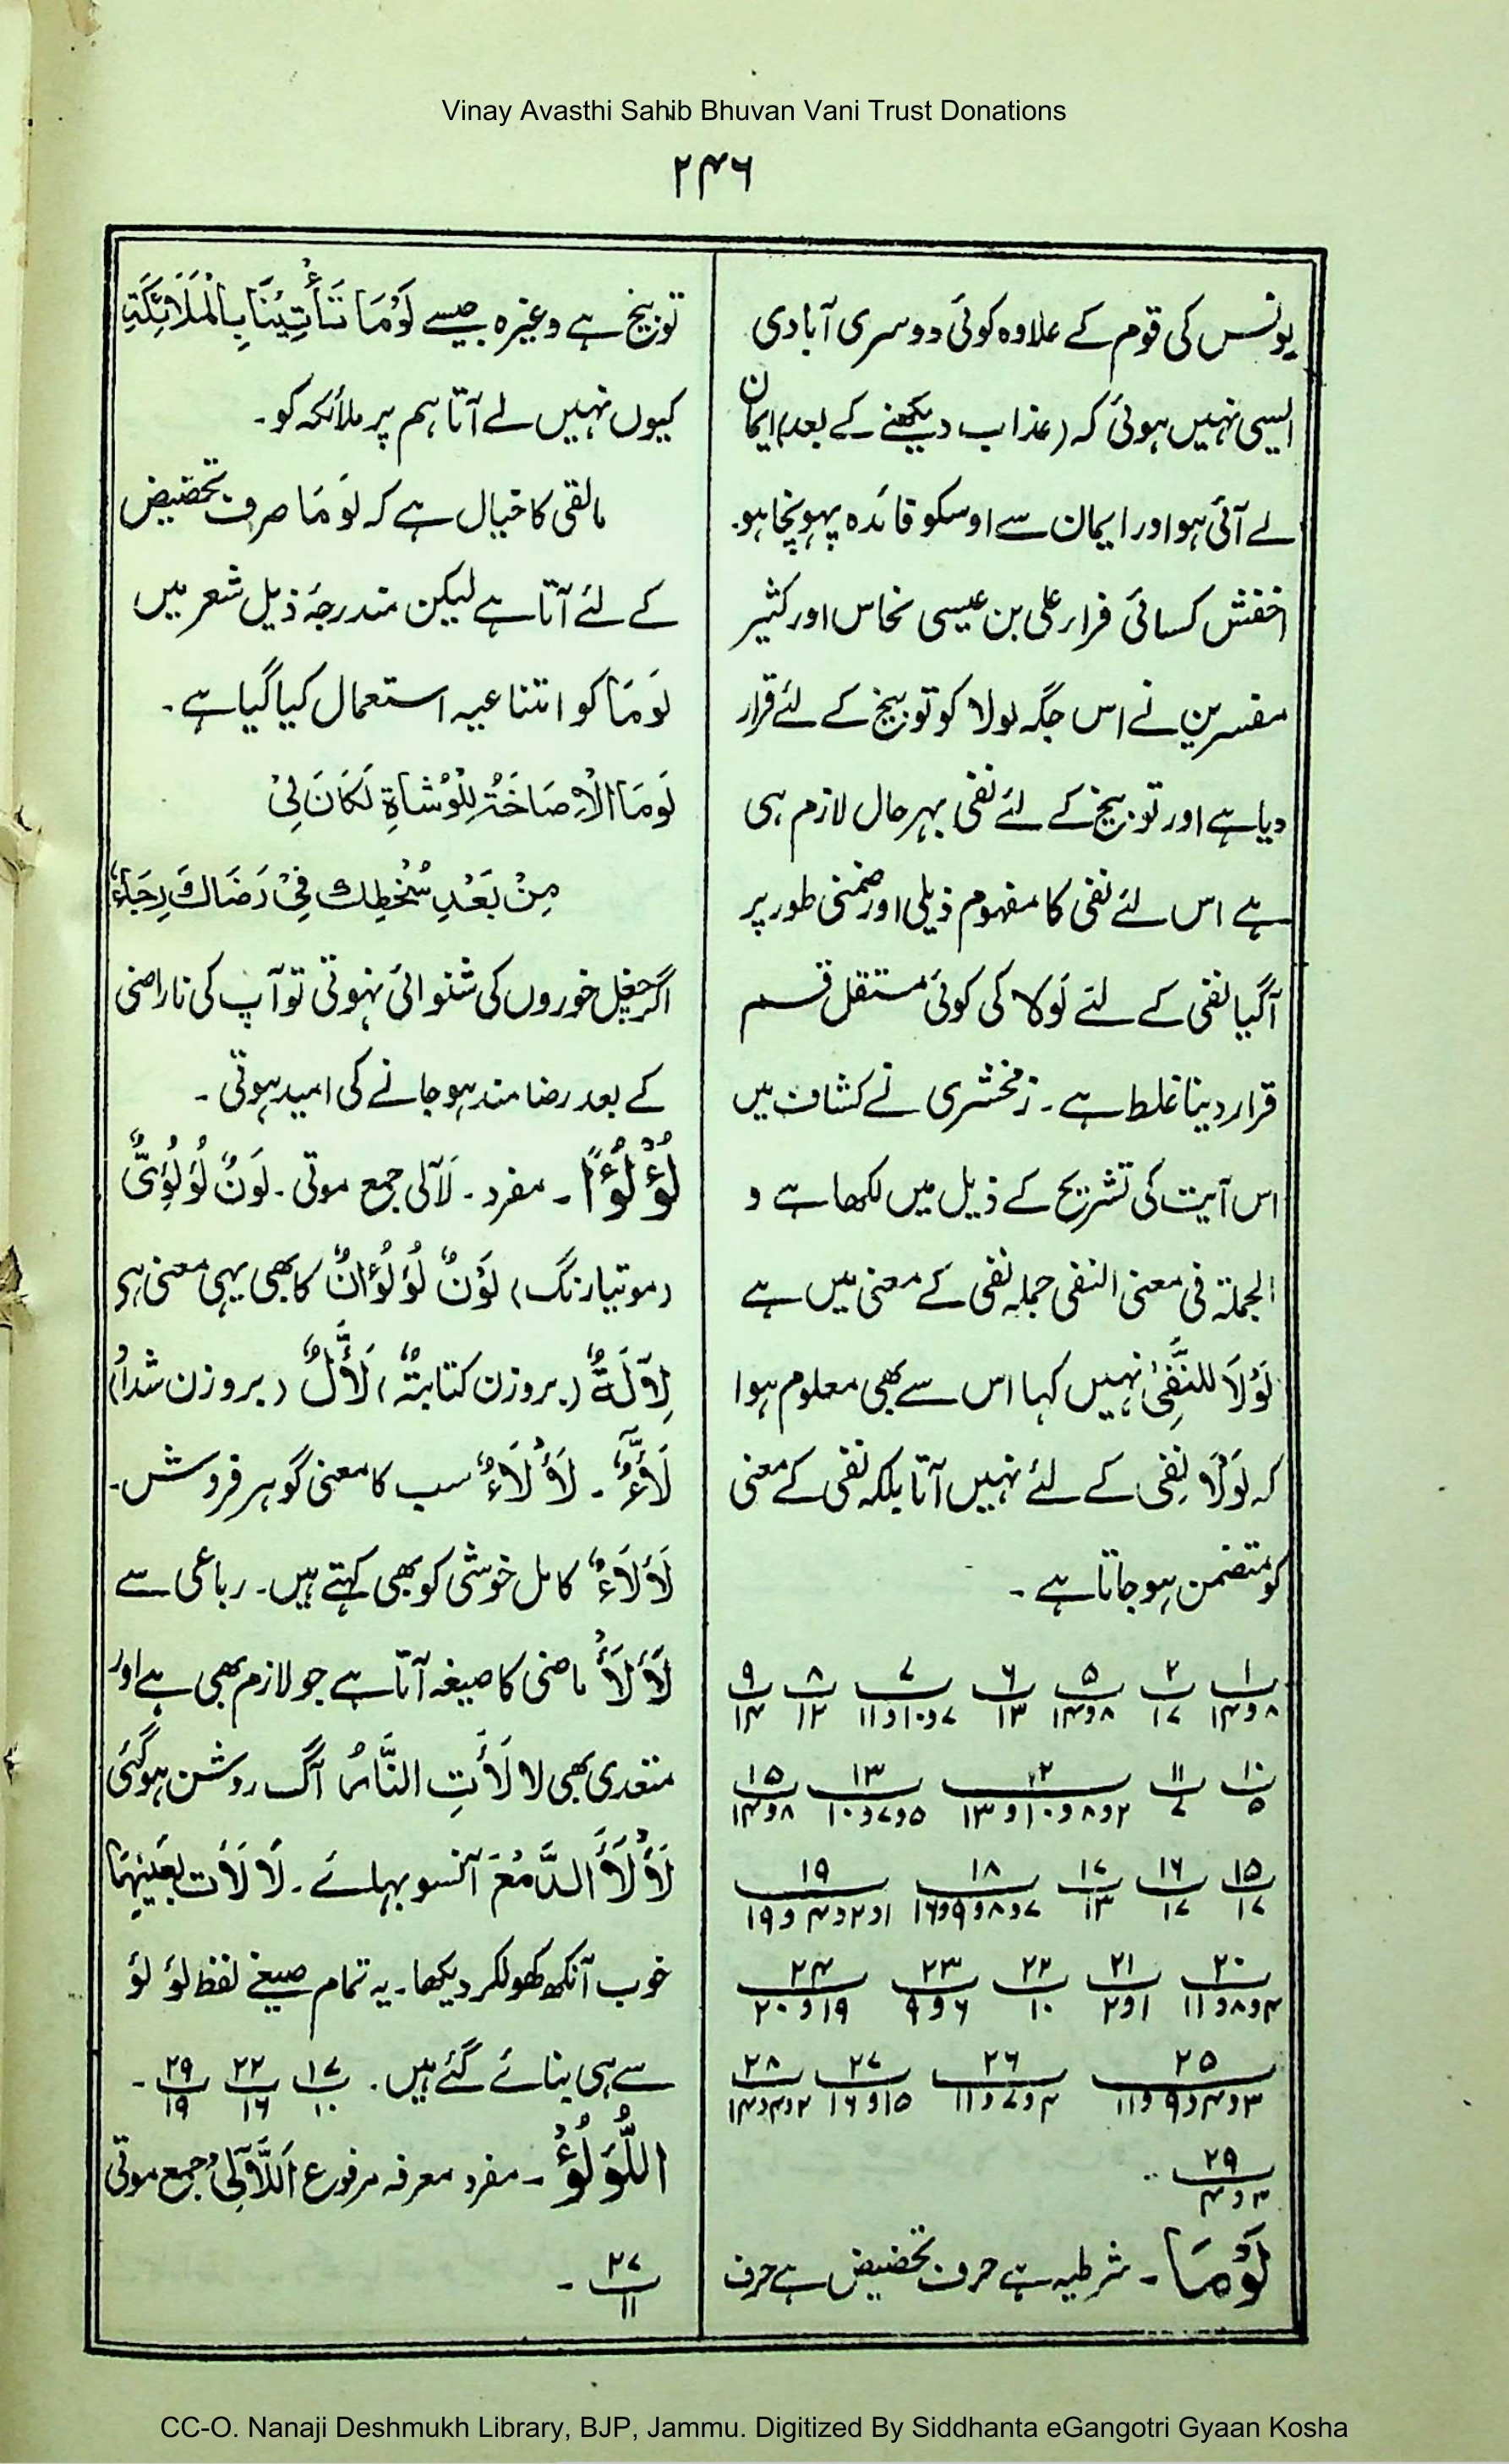 Vinay Avasthi Sahib Bhuvan Vani Trust Donations
۲۴۶
یونس کی قوم کے علاوہ کوئی دوسری آبادی
ایسی نہیں ہوئی کہ (عذاب دیکھنے کے بعد) ایمان
لے آئی ہو اور ایمان سے اوسکو فائدہ پہونچا ہو۔
اخفش کسائی فراء علی بن عیسی نحاس اور کثیر
مفسرین نے اس جگہ لولا کو توبیخ کے لئے قرار
دیا ہے اور توبیخ کے لئے نفی بہر حال لازم ہی
ہے اس لئے نفی کا مفہوم ذیلی اور ضمنی طور پر
آگیا نفی کے لئے لَولا کی کوئی مستقل قسم
قرار دینا غلط ہے۔ زمخشری نے کشاف میں
اس آیت کی تشریح کے ذیل میں لکھا ہے و
الجملۃ فی معنی النفی جملہ نفی کے معنی میں ہے
لَوْلَا للنَّفِیْ نہیں کہا اس سے بھی معلوم ہوا
کہ لَوْلَا نفی کے لئے نہیں آتا بلکہ نفی کے معنی
کو متضمن ہو جاتا ہے ۔
۱ ۲ ۵ ۶ ۷ ۸ ۹
۸ و ۱۴ ۱۷ ۸ و ۱۴ ۱۳ ۷ و ۱۰ و ۱۱ ۱۲ ۱۴
۱۰ ۱۱ ۱۲ ۱۳ ۱۵
۵ ۷ ۲ و ۸ و ۱۰ و ۱۳ ۵ و ۷ و ۱۰ ۸ و ۱۴
۱۵ ۱۶ ۱۷ ۱۸ ۱۹
۱۷ ۱۷ ۱۳ ۷ و ۸ و ۹ و ۱۶ ۱ و ۲ و ۴ و ۱۹
۲۰ ۲۱ ۲۲ ۲۳ ۲۴
۴ و ۸ و ۱۱ ۱ و ۲ ۱۰ ۶ و ۹ ۱۹ و ۲۰
۲۵ ۲۶ ۲۷ ۲۸
۳ و ۴ و ۹ و ۱۱ ۴ و ۷ و ۱۱ ۱۵ و ۱۶ ۲ و ۴ و ۱۴
۲۹
۳ و ۴
لَوْمَا ۔ شرطیہ ہے حرف تحضیض ہے حرف
توبیخ ہے وغیرہ جیسے لَوْمَا تَأْتِيْنَا بِالْمَلَائِكَةِ
کیوں نہیں لے آتا ہم پر ملائکہ کو۔
مالقی کا خیال ہے کہ لَوْمَا صرف تحضیض
کے لئے آتا ہے لیکن مندرجۂ ذیل شعر میں
لَوْمَا کو امتناعیہ استعمال کیا گیا ہے ۔
لَوْمَا الْاِصَاخَةُ لِلْوُشَاةِ لَكَانَ لِیْ
مِنْ بَعْدِ سُخْطِكَ فِیْ رَضَاكَ رِجَاءٌ
اگر چغل خوروں کی شنوائی نہوتی تو آپ کی ناراضی
کے بعد رضا مند ہو جانے کی امید ہوتی ۔
لُؤْلُؤًا ۔ مفرد ۔ لَآلی جمع موتی ۔ لَوْنٌ لُؤْلُؤِیٌّ
(موتیا رنگ) لَوْنٌ لُؤْلُؤَانٌ کا بھی یہی معنی ہو
لِآلَةٌ (بروزن کتابتہٌ) لَأّلٌ (بروزن شداد)
لَأّءٌ ۔ لَأْلَاءٌ سب کا معنی گوہر فروش۔
لَأْلَاءٌ کامل خوشی کو بھی کہتے ہیں۔ رباعی سے
لَأْلَأَ ماضی کا صیغہ آتا ہے جو لازم بھی ہے اور
متعدی بھی لالَأَتِ النَّارُ آگ روشن ہوگئی
لَأْلَأَ الدَّمْعَ آنسو بہائے ۔ لَا لَأَت بِعَیْنِهَا
خوب آنکھ کھولکر دیکھا۔ یہ تمام صیغے لفظ لؤ لؤ
سے ہی بنائے گئے ہیں . ۱۷ ۲۲ ۲۹ ۔
۱۰ ۱۶ ۱۹
اللُّؤْلُؤُ ۔ مفرد معرفہ مرفوع اَللَّآلِیْ جمع موتی
۲۷ ۔
۱۱
CC-O. Nanaji Deshmukh Library, BJP, Jammu. Digitized By Siddhanta eGangotri Gyaan Kosha